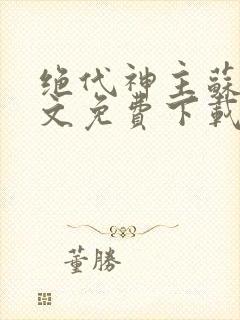 绝代神主蘇
文免費下載
董勝